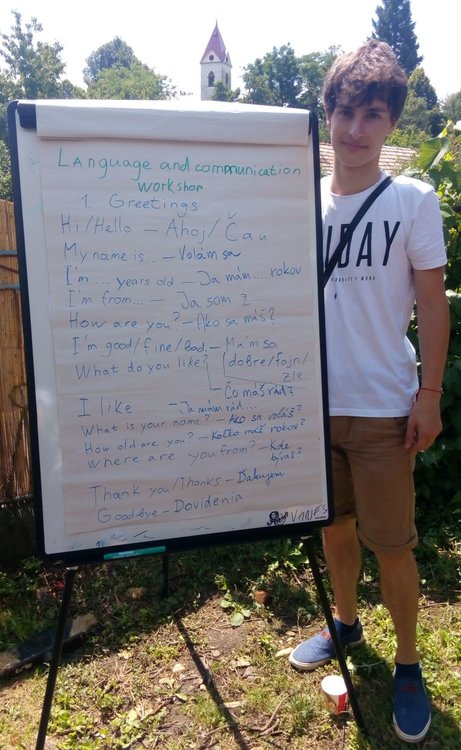 Language and communication
workshop
1. Greetings
Hi/Hello – Ahoj/Čau
My name is.. – Volám sa
I'm ... years old – Ja mám .... rokov
I'm from... – Ja som z...
How are you? – Ako sa máš?
I'm good/fine/bad – Mám sa
(dobre/fajn/
zle.
What do you like?
Čo máš rád?
I like .... – Ja mám rád...
What is your name? – Ako sa voláš?
How old are you? – Koľko máš rokov?
Where are you from? – Kde
bývaš?
Thank you/Thanks – Ďakujem
Goodbye – Dovidenia
DAY